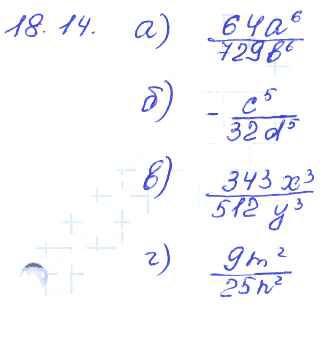 18.14. а) 64a⁶/729b⁶
б) - c⁵/32d⁵
в) 343x³/512y³
г) 9m²/25n²